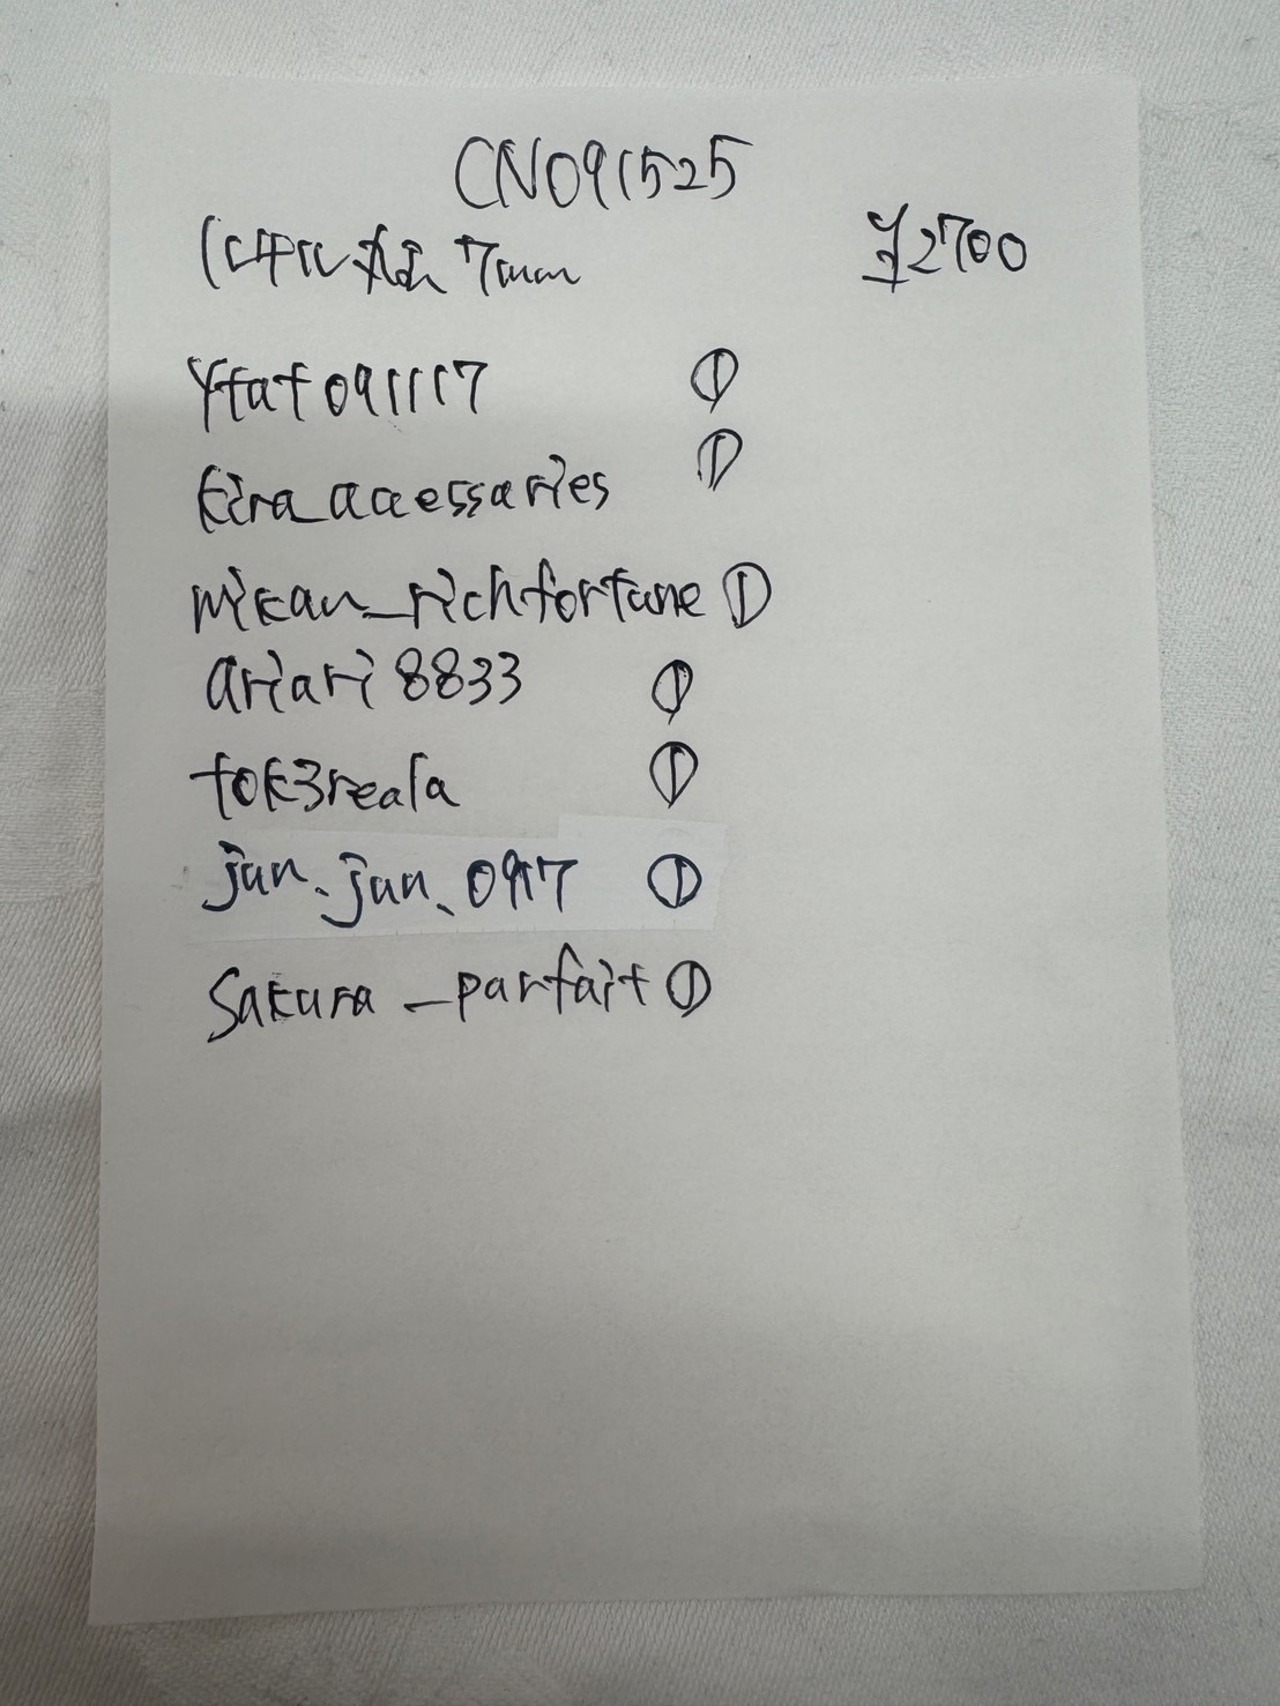 CN091525
7mm ¥2700
Yfat091117 ①
kira_accessaries ①
mikan_richfortune ①
ariari8833 ①
tok3reala ①
jun.jun.0917 ①
Sakura_parfait ①